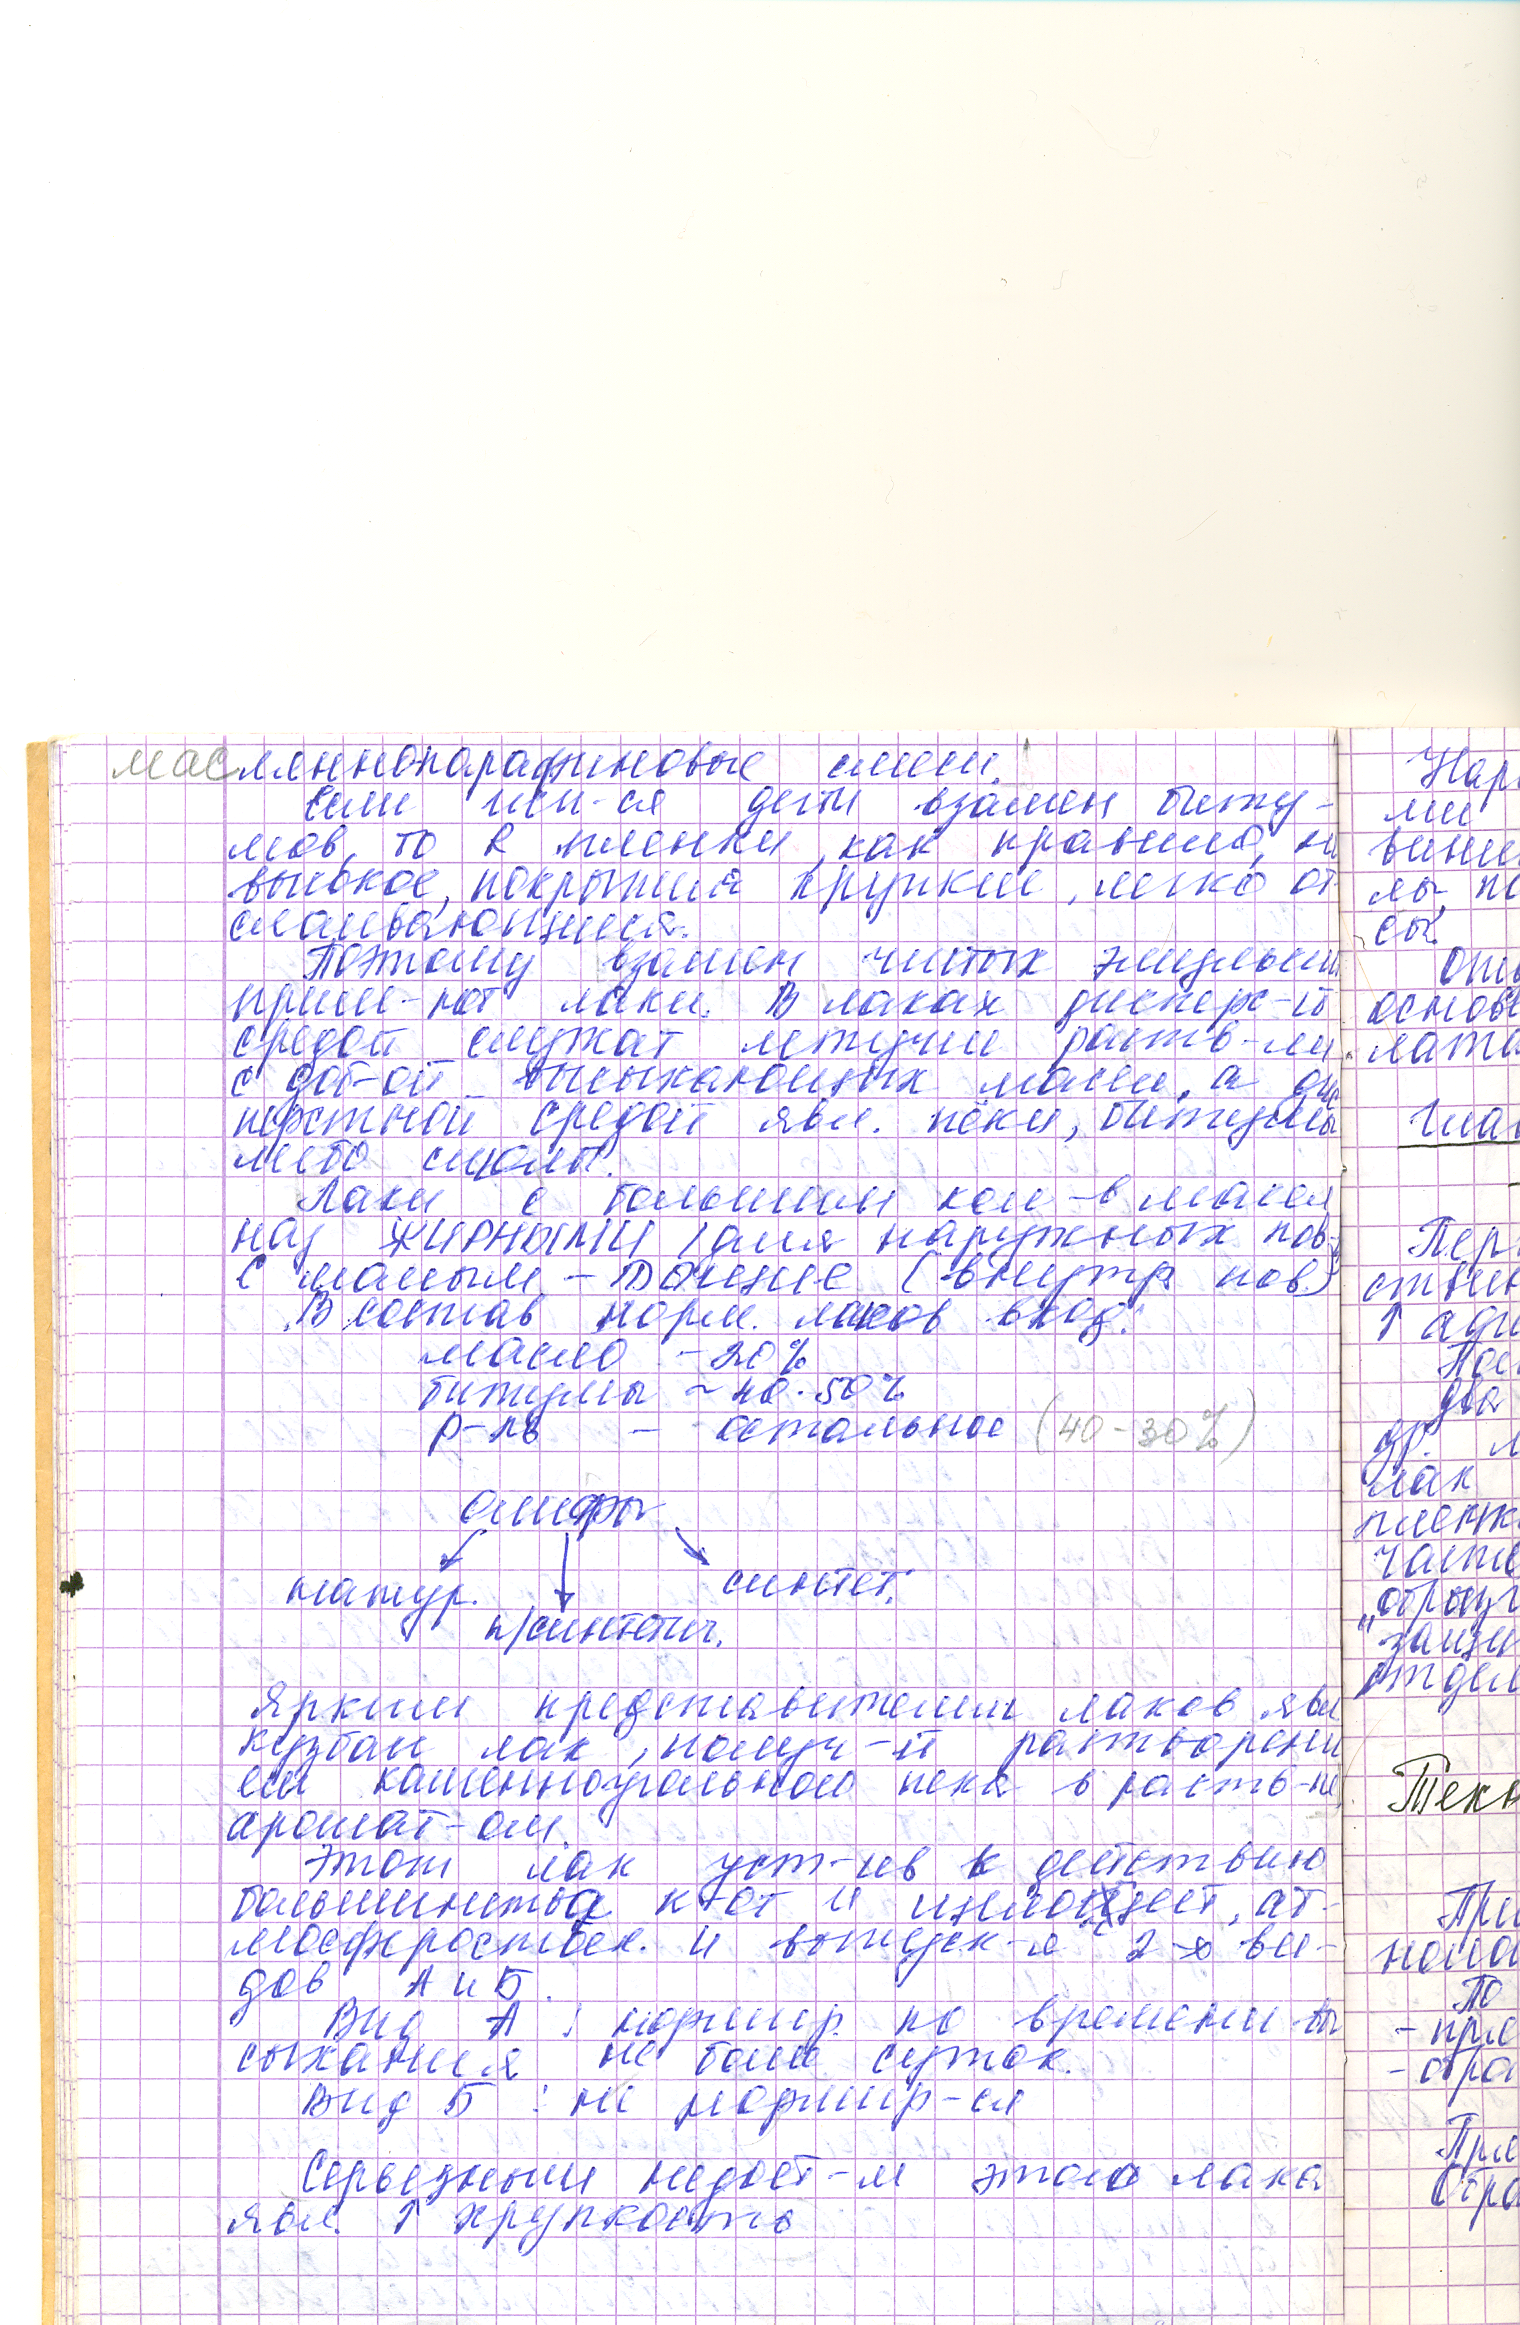 масляннопарафиновые смеси.
Если исп-ся дегти взамен биту-
мов, то R пленки, как правило, не
высокое, покрытия хрупкие, легко от-
слаивающиеся.
Поэтому взамен чистых эмульсий
прим-ют лаки. В лаках дисперс-й
средой служат летучие раств-ли
с доб-ой высыхающих масел, а дис
персной средой явл. пёки, битумы
либо смолы.
Лаки с большим кол-в масел
наз ЖИРНЫМИ (для наружных пов-
С малым - Тощие (внутр пов.)
В состав норм. лаков вход:
масло - 20%
битумы ~ 40-50%
р-ль - остальное (40-30%)
олифы
натур.
синтет.
п/синтетич.
Ярким представителем лаков явл
кузбас лак, получ-й растворени
ем каменноугольного пека в раств-ле
аромат-ом.
Этот лак уст-ив к действию
большинства к-от и щелочей, ат-
мосферостоек. и выпуск-я 2-х ви-
дов А и Б.
Вид А : нормир. по времени вы
сыхания не более суток.
Вид Б : не нормир-ся
Серьезным недост-м этого лака
явл. ↑ хрупкость
Нар
ми
вини
лы, по
сы.
осново
лата
Глав
Пер
ствин
↑ адг
Пос
два
др. л
лак
пленк
части
„образ
защи
отдел
Техн
При
пола
По
- пря
- обра
Пря
Обра